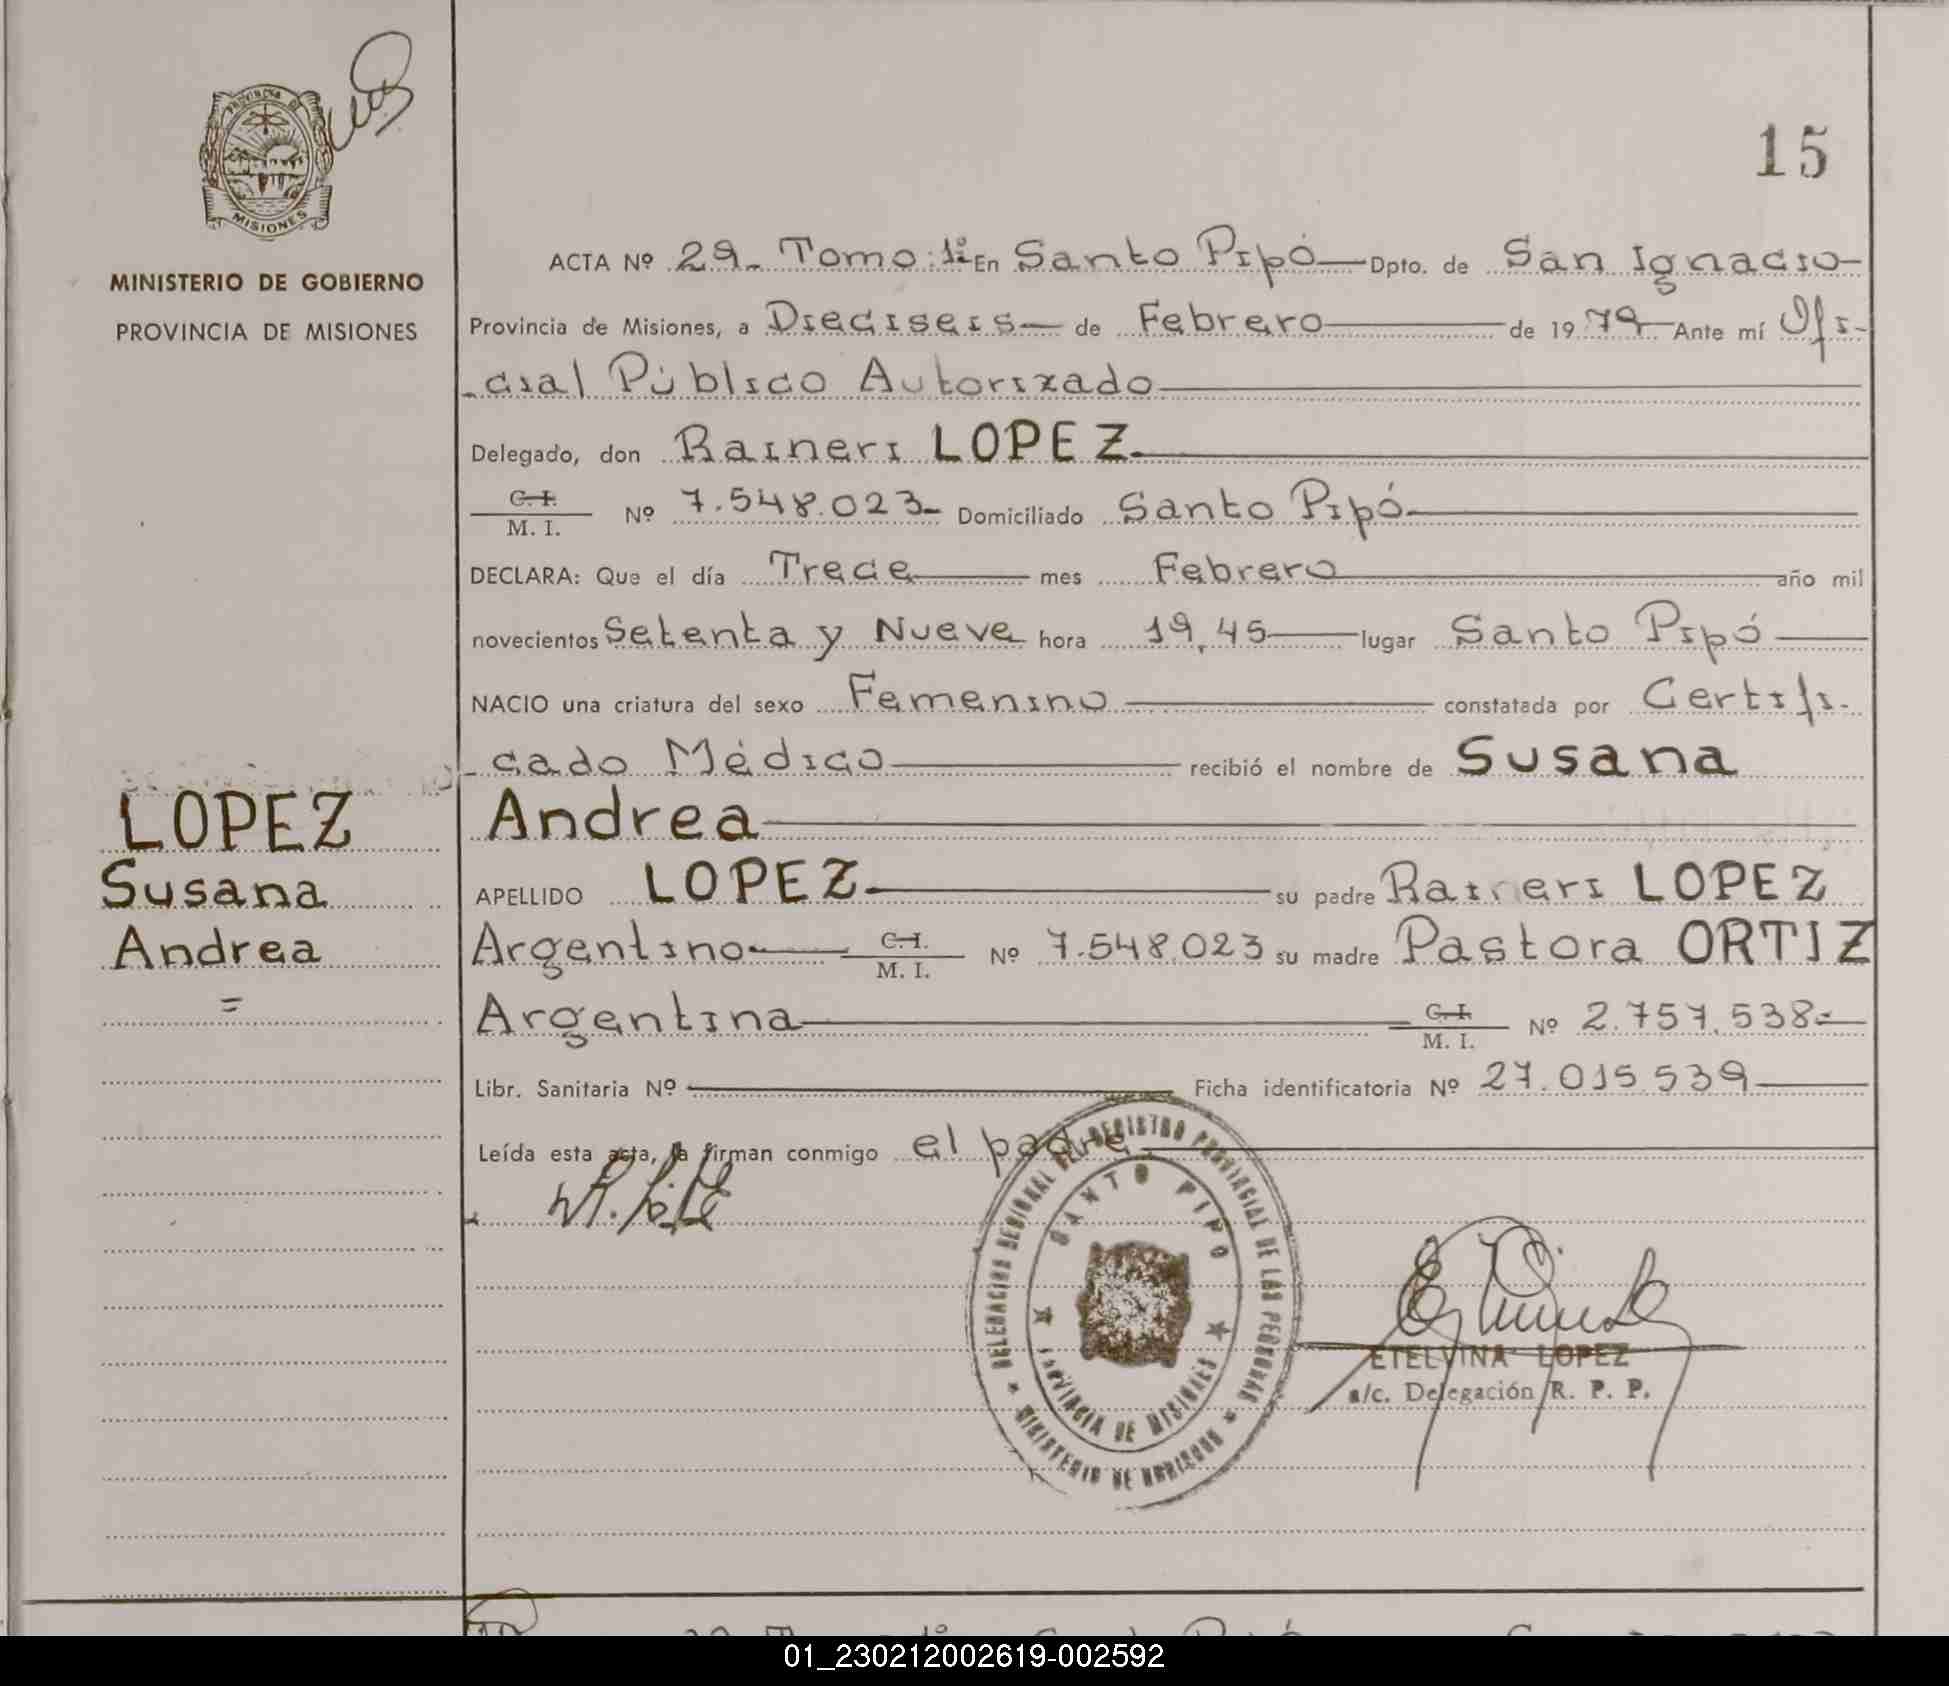 PROVINCIA DE
MISIONES
MINISTERIO DE GOBIERNO
PROVINCIA DE MISIONES
15
ACTA Nº 29 - Tomo: 1º En Santo Pipó — Dpto. de San Ignacio —
Provincia de Misiones, a Dieciseis — de Febrero — de 1979 — Ante mí Ofi-
-cial Público Autorizado —
Delegado, don Raineri LOPEZ. —
C. I.
M. I. Nº 7.548.023 - Domiciliado Santo Pipó —
DECLARA: Que el día Trece — mes Febrero — año mil
novecientos Setenta y Nueve hora 19,45 — lugar Santo Pipó —
NACIO una criatura del sexo Femenino — constatada por Certifi-
-cado Médico — recibió el nombre de Susana
Andrea —
APELLIDO LOPEZ. — su padre Raineri LOPEZ
Argentino — C. I. M. I. Nº 7.548.023 su madre Pastora ORTIZ
Argentina — C. I. M. I. Nº 2.757.538 - —
Libr. Sanitaria Nº — Ficha identificatoria Nº 27.015.539 —
Leída esta acta, la firman conmigo el padre. —
LOPEZ
Susana
Andrea
=
DELEGACION REGIONAL DEL REGISTRO PROVINCIAL DE LAS PERSONAS
MINISTERIO DE GOBIERNO
SANTO PIPO
PROVINCIA DE MISIONES
ETELVINA LOPEZ
a/c. Delegación R. P. P.
01_230212002619-002592